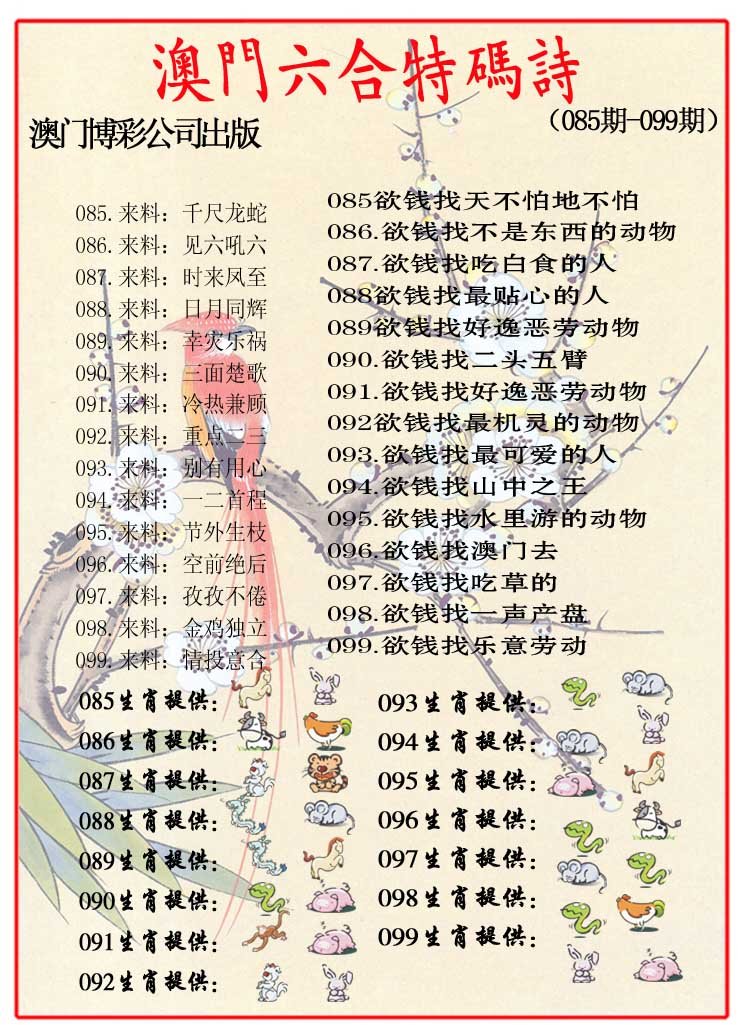 澳門六合特碼詩
澳门博彩公司出版
（085期-099期）
085.来料：千尺龙蛇
086.来料：见六吼六
087.来料：时来凤至
088.来料：日月同辉
089.来料：幸灾乐祸
090.来料：三面楚歌
091.来料：冷热兼顾
092.来料：重点二三
093.来料：别有用心
094.来料：一二首程
095.来料：节外生枝
096.来料：空前绝后
097.来料：孜孜不倦
098.来料：金鸡独立
099.来料：情投意合
085欲钱找天不怕地不怕
086.欲钱找不是东西的动物
087.欲钱找吃白食的人
088欲钱找最贴心的人
089欲钱找好逸恶劳动物
090.欲钱找二头五臂
091.欲钱找好逸恶劳动物
092欲钱找最机灵的动物
093.欲钱找最可爱的人
094.欲钱找山中之王
095.欲钱找水里游的动物
096.欲钱找澳门去
097.欲钱找吃草的
098.欲钱找一声产盘
099.欲钱找乐意劳动
085生肖提供：
086生肖提供：
087生肖提供：
088生肖提供：
089生肖提供：
090生肖提供：
091生肖提供：
092生肖提供：
093生肖提供：
094生肖提供：
095生肖提供：
096生肖提供：
097生肖提供：
098生肖提供：
099生肖提供：